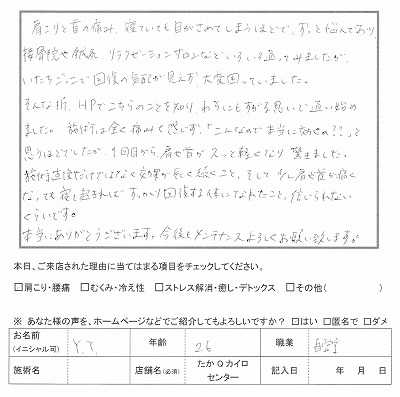 肩こりと首の痛み、寝ていても目がさめてしまうほどで、ずっと悩んでおり、
接骨院や鍼灸、リラクゼーションサロンなどいろいろ通ってみましたが、
いたちごっこで回復の気配が見えず、大変困っていました。
そんな折、HPでこちらのことを知り、わらにもすがる思いで通い始め
ました。施術は全く痛みを感じず、「こんなので本当に効くの??」と
思うほどでしたが、1回目から肩や首がスッと軽くなり驚きました。
施術直後だけではなく効果が長く続くこと、そして少し肩や首が痛く
なっても寝て起きればすっかり回復する体になれたこと、信じられない
ぐらいです。
本当にありがとうございます。今後もメンテナンスよろしくお願い致します。
本日、ご来店された理由に当てはまる項目をチェックしてください。
□肩こり・腰痛 □むくみ・冷え性 □ストレス解消・癒し・デトックス □その他( )
※ あなた様の声を、ホームページなどでご紹介してもよろしいですか? ☑はい □匿名で □ダメ
お名前 (イニシャル可) Y.T. 年齢 26 職業
施術名 店舗名(必須) たかQカイロセンター 記入日 年 月 日